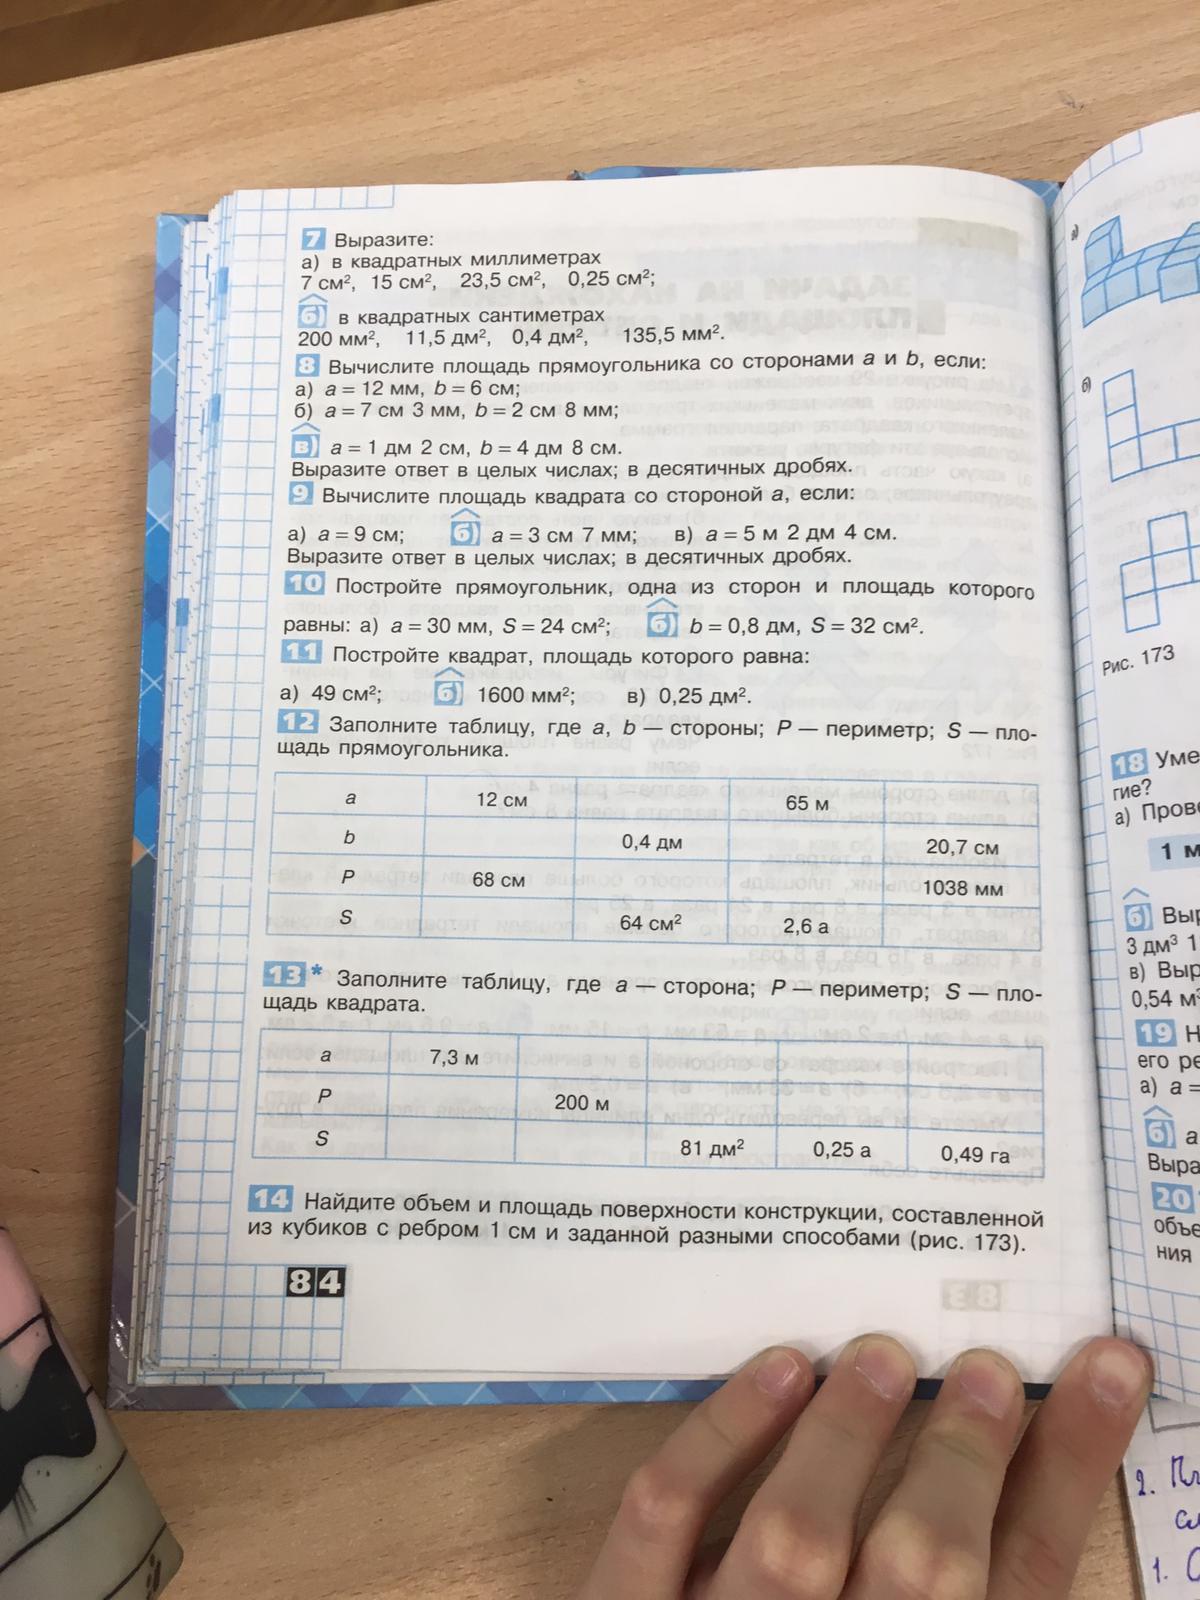 7 Выразите:
а) в квадратных миллиметрах
7 см², 15 см², 23,5 см², 0,25 см²;
б) в квадратных сантиметрах
200 мм², 11,5 дм², 0,4 дм², 135,5 мм².
8 Вычислите площадь прямоугольника со сторонами a и b, если:
а) a = 12 мм, b = 6 см;
б) a = 7 см 3 мм, b = 2 см 8 мм;
в) a = 1 дм 2 см, b = 4 дм 8 см.
Выразите ответ в целых числах; в десятичных дробях.
9 Вычислите площадь квадрата со стороной a, если:
а) a = 9 см; б) a = 3 см 7 мм; в) a = 5 м 2 дм 4 см.
Выразите ответ в целых числах; в десятичных дробях.
10 Постройте прямоугольник, одна из сторон и площадь которого
равны: а) a = 30 мм, S = 24 см²; б) b = 0,8 дм, S = 32 см².
11 Постройте квадрат, площадь которого равна:
а) 49 см²; б) 1600 мм²; в) 0,25 дм².
12 Заполните таблицу, где a, b — стороны; P — периметр; S — пло-
щадь прямоугольника.
a 12 см 65 м
b 0,4 дм 20,7 см
P 68 см 1038 мм
S 64 см² 2,6 а
13* Заполните таблицу, где a — сторона; P — периметр; S — пло-
щадь квадрата.
a 7,3 м
P 200 м
S 81 дм² 0,25 а 0,49 га
14 Найдите объем и площадь поверхности конструкции, составленной
из кубиков с ребром 1 см и заданной разными способами (рис. 173).
84
а)
б)
Рис. 173
18 Уме
гие?
а) Прове
1 м
б) Выр
3 дм³ 1
в) Выр
0,54 м³
19 Н
его ре
а) a =
б) a
Выра
20
объе
ния
2. Пл
сл
1. С